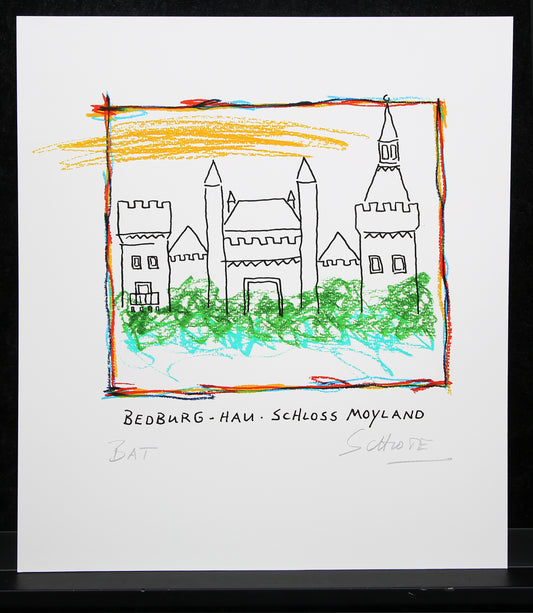 BEDBURG-HAU. SCHLOSS MOYLAND
BAT
SCHLOTE